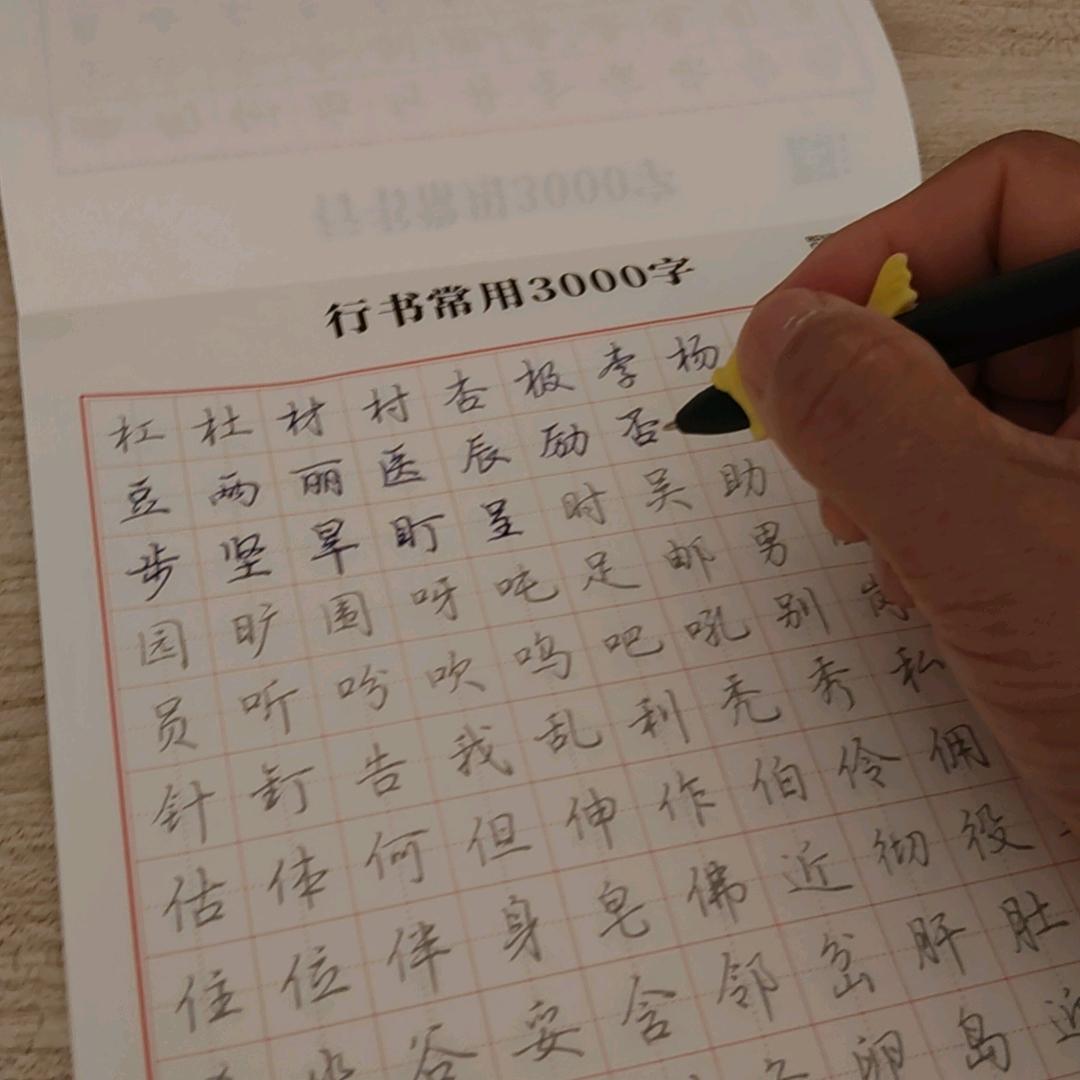 行书常用3000字
杠 杜 材 村 杏 极 李 杨
豆 两 丽 医 辰 励 否
步 坚 旱 盯 呈 时 吴 助
园 旷 围 呀 吨 足 邮 男
员 听 吩 吹 呜 吧 吼 别 岗
针 钉 告 我 乱 利 秃 秀 私
估 体 何 但 伸 作 伯 伶 佣
住 位 伴 身 皂 佛 近 彻 役
谷 妥 含 邻 岔 肝 肚
卵 岛